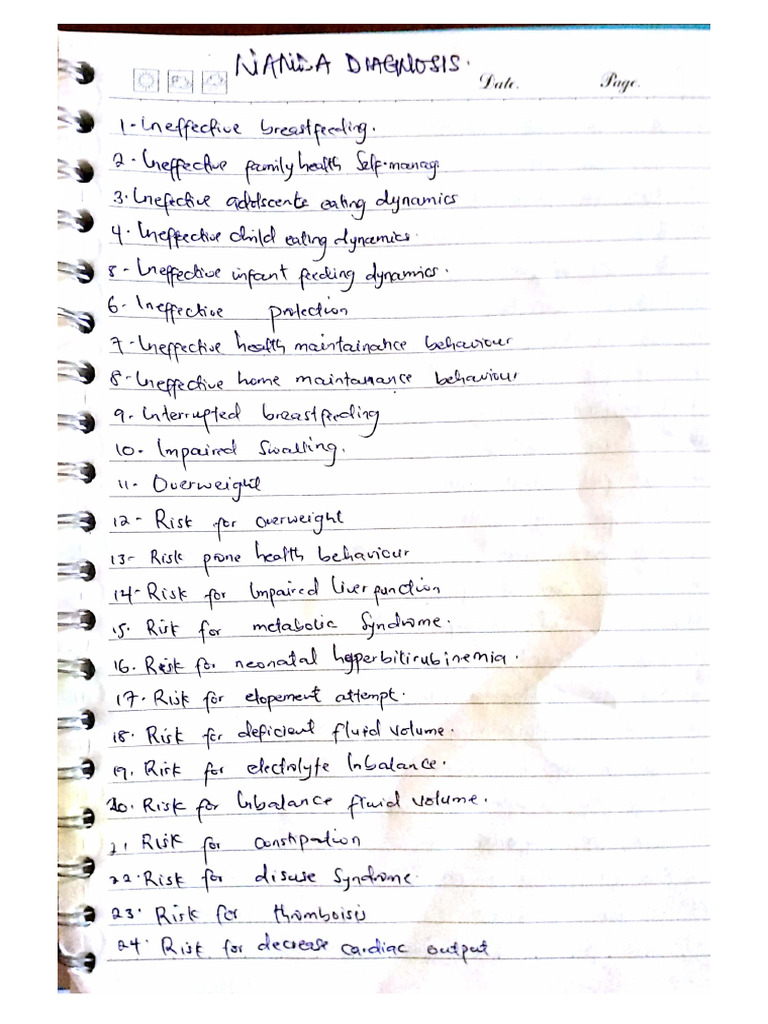 NANDA DIAGNOSIS.
Date. Page.
1- Ineffective breastfeeding.
2- Ineffective family health Self-manag.
3. Inefective adolscents eating dynamics
4- Ineffective child eating dynamics.
5- Ineffective infant feeding dynamics.
6- Ineffective protection
7- Ineffective health maintainance behaviour
8- Ineffective home maintanance behaviour
9- Interrupted breastfeeding
10- Impaired Swalling.
11- Overweight
12- Risk for overweight
13- Risk prone health behaviour
14- Risk for Impaired liver function
15. Risk for metabolic Syndrome.
16. Risk for neonatal hyperbitirubinemia.
17. Risk for elopement attempt.
18. Risk for deficient fluid volume.
19. Risk for electrolyte Inbalance.
20. Risk for Inbalance fluid volume.
21. Risk for Constipation
22. Risk for disuse Syndrome.
23. Risk for thromboisis
24. Risk for decrease cardiac output